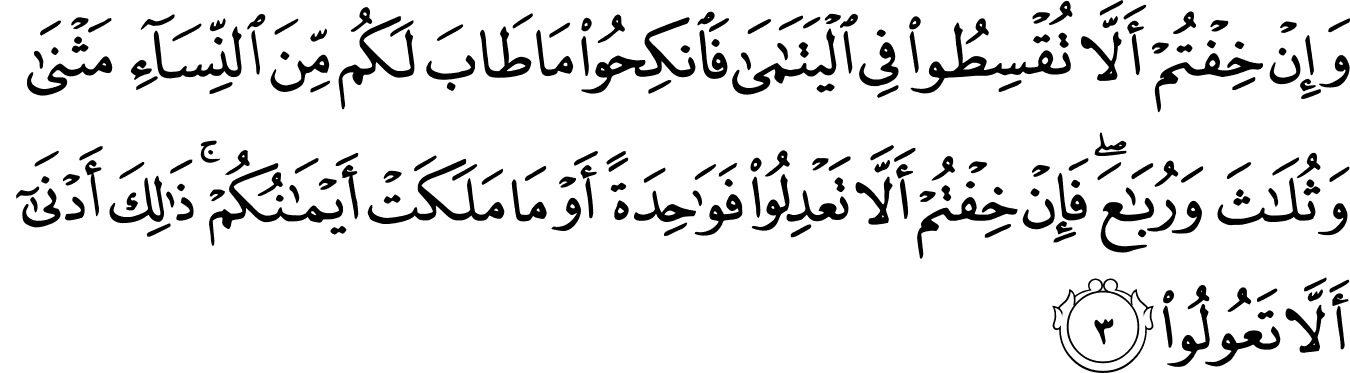 وَإِنْ خِفْتُمْ أَلَّا تُقْسِطُوا۟ فِى ٱلْيَتَـٰمَىٰ فَٱنكِحُوا۟ مَا طَابَ لَكُم مِّنَ ٱلنِّسَآءِ مَثْنَىٰ
وَثُلَـٰثَ وَرُبَـٰعَ ۖ فَإِنْ خِفْتُمْ أَلَّا تَعْدِلُوا۟ فَوَٰحِدَةً أَوْ مَا مَلَكَتْ أَيْمَـٰنُكُمْ ۚ ذَٰلِكَ أَدْنَىٰٓ
أَلَّا تَعُولُوا۟ ٣